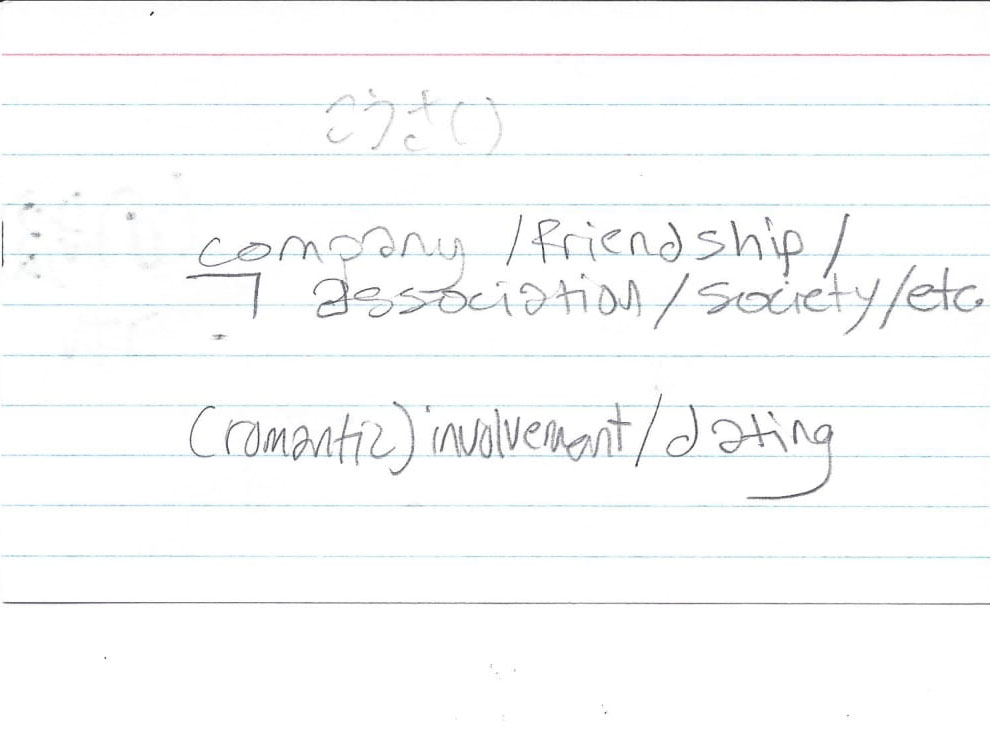 こうさい
company /friendship/
association/society/etc.
(romantic) involvement/dating